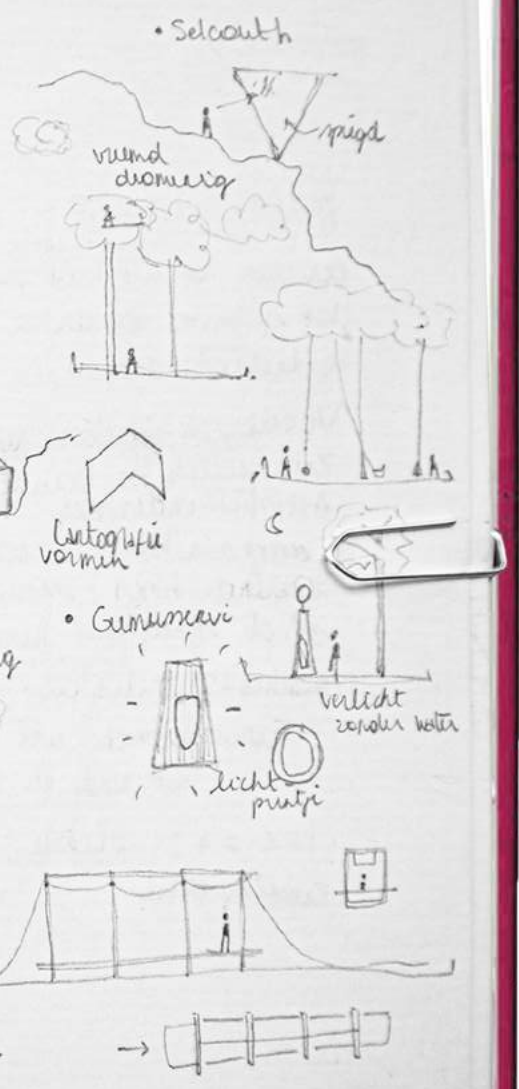 • Selcouth
spiegel
vreemd
dromerig
Cartografie
vormen
• Gumusservi
verlicht
zonder water
licht
puntje